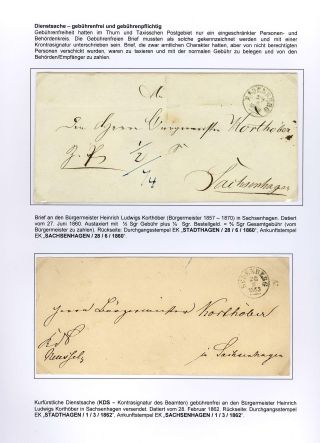 Dienstsache – gebührenfrei und gebührenpflichtig
Gebührenfreiheit hatten im Thurn und Taxisschen Postgebiet nur ein eingeschränkter Personen- und
Behördenkreis. Die Gebührenfreien Brief mussten als solche gekennzeichnet werden und mit einer
Kontrasignatur unterschrieben sein. Brief, die zwar amtlichen Charakter hatten, aber von nicht berechtigten
Personen verschickt wurden, waren zu taxieren und mit der normalen Gebühr zu belegen und von den
Behörden/Empfänger zu zahlen.
Korthöber
1/2
Sachsenhagen
Brief an den Bürgermeister Heinrich Ludwigs Korthöber (Bürgermeister 1857 – 1870) in Sachsenhagen. Datiert
vom 27. Juni 1860. Austaxiert mit ½ Sgr Gebühr plus ¼ Sgr. Bestellgeld. = ¾ Sgr Gesamtgebühr (vom
Bürgermeister zu zahlen). Rückseite: Durchgangsstempel EK „STADTHAGEN / 28 / 6 / 1860“, Ankunftstempel
EK „SACHSENHAGEN / 28 / 6 / 1860“.
Herrn Bürgermeister Korthöber
KdS
in Sachsenhagen
Kurfürstliche Dienstsache (KDS – Kontrasignatur des Beamten) gebührenfrei an den Bürgermeister Heinrich
Ludwigs Korthöber in Sachsenhagen versendet. Datiert vom 28. Februar 1862. Rückseite: Durchgangsstempel
EK „STADTHAGEN / 1 / 3 / 1862“, Ankunftstempel EK „SACHSENHAGEN / 1 / 3 / 1862“.